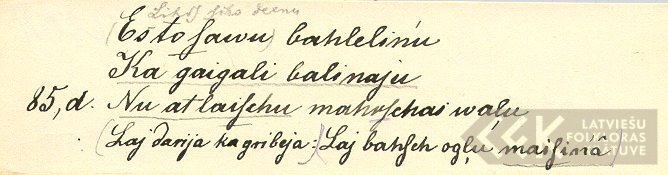 Lihdſ ſcho deenu
(Es to ſawu) bahleliņu
Ka gaigali balinaju
85, d. Nu atlaiſchu mahrſchas waļu
(Laj darija ka gribeja: (Laj bahſch ogļu maiſinâ)
LATVIEŠU
FOLKLORAS
KRĀTUVE